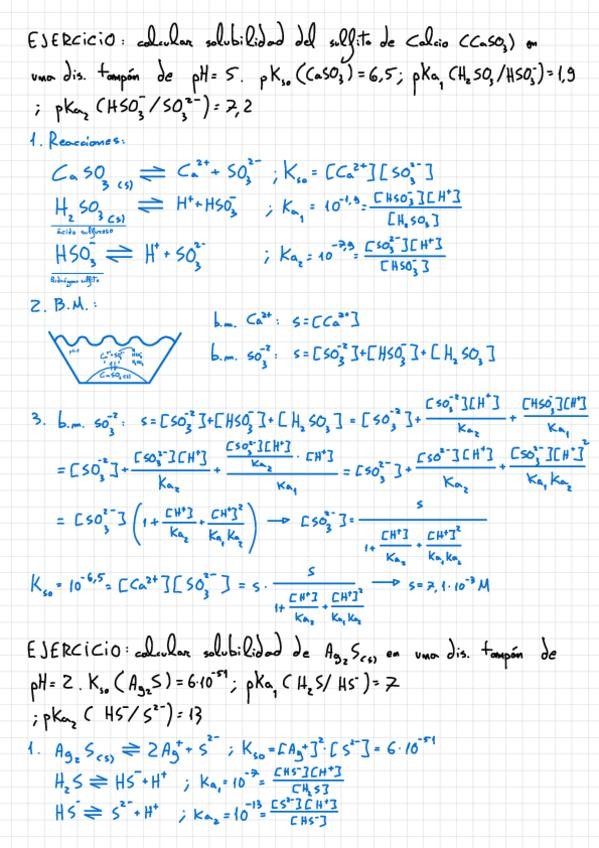 EJERCICIO: calcular solubilidad del sulfito de Calcio (CaSO₃) en
una dis. tampón de pH=5. pKso(CaSO₃)=6,5; pKa₁(H₂SO₃/HSO₃⁻)=1,9
; pKa₂(HSO₃⁻/SO₃²⁻)=7,2
1. Reacciones:
CaSO₃(s) ⇌ Ca²⁺+SO₃²⁻ ; Kso=[Ca²⁺][SO₃²⁻]
H₂SO₃(s) ⇌ H⁺+HSO₃⁻ ; Ka₁=10⁻¹'⁹=[HSO₃⁻][H⁺]/[H₂SO₃]
Ácido sulfuroso
HSO₃⁻ ⇌ H⁺+SO₃²⁻ ; Ka₂=10⁻⁷'⁹=[SO₃²⁻][H⁺]/[HSO₃⁻]
Hidrógeno sulfito
2. B.M.:
b.m. Ca²⁺: s=[Ca²⁺]
b.m. SO₃⁻²: s=[SO₃⁻²]+[HSO₃⁻]+[H₂SO₃]
CaSO₃(s)
3. b.m. SO₃⁻²: s=[SO₃⁻²]+[HSO₃⁻]+[H₂SO₃]=[SO₃⁻²]+[SO₃⁻²][H⁺]/Ka₂+[HSO₃⁻][H⁺]/Ka₁
=[SO₃⁻²]+[SO₃²⁻][H⁺]/Ka₂+([SO₃²⁻][H⁺]/Ka₂·[H⁺])/Ka₁=[SO₃⁻²]+[SO₃²⁻][H⁺]/Ka₂+[SO₃²⁻][H⁺]²/Ka₁Ka₂
=[SO₃²⁻](1+[H⁺]/Ka₂+[H⁺]²/Ka₁Ka₂) → [SO₃²⁻]=s/(1+[H⁺]/Ka₂+[H⁺]²/Ka₁Ka₂)
Kso=10⁻⁶'⁵=[Ca²⁺][SO₃²⁻]=s·s/(1+[H⁺]/Ka₂+[H⁺]²/Ka₁Ka₂) → s=7,1·10⁻³M
EJERCICIO: calcular solubilidad de Ag₂S(s) en una dis. tampón de
pH=2. Kso(Ag₂S)=6·10⁻⁵¹; pKa₁(H₂S/HS⁻)=7
; pKa₂(HS⁻/S²⁻)=13
1. Ag₂S(s) ⇌ 2Ag⁺+S²⁻ ; Kso=[Ag⁺]²·[S²⁻]=6·10⁻⁵¹
H₂S ⇌ HS⁻+H⁺ ; Ka₁=10⁻⁷=[HS⁻][H⁺]/[H₂S]
HS⁻ ⇌ S²⁻+H⁺ ; Ka₂=10⁻¹³=[S²⁻][H⁺]/[HS⁻]